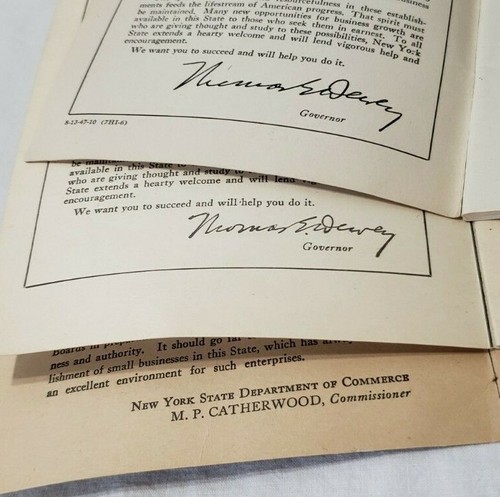 resourcefulness in these establish-
ments feeds the lifestream of American progress. That spirit must
be maintained. Many new opportunities for business growth are
available in this State to those who seek them in earnest. To all
who are giving thought and study to these possibilities, New York
State extends a hearty welcome and will lend vigorous help and
encouragement.
We want you to succeed and will help you do it.
Thomas E. Dewey
Governor
8-13-47-10 (7HI-6)
available in this State to
who are giving thought and study to
State extends a hearty welcome and will lend
encouragement.
We want you to succeed and will help you do it.
Thomas E. Dewey
Governor
Boards in
ness and authority. It should go far
lishment of small businesses in this State, which has
an excellent environment for such enterprises.
New York State Department of Commerce
M. P. CATHERWOOD, Commissioner